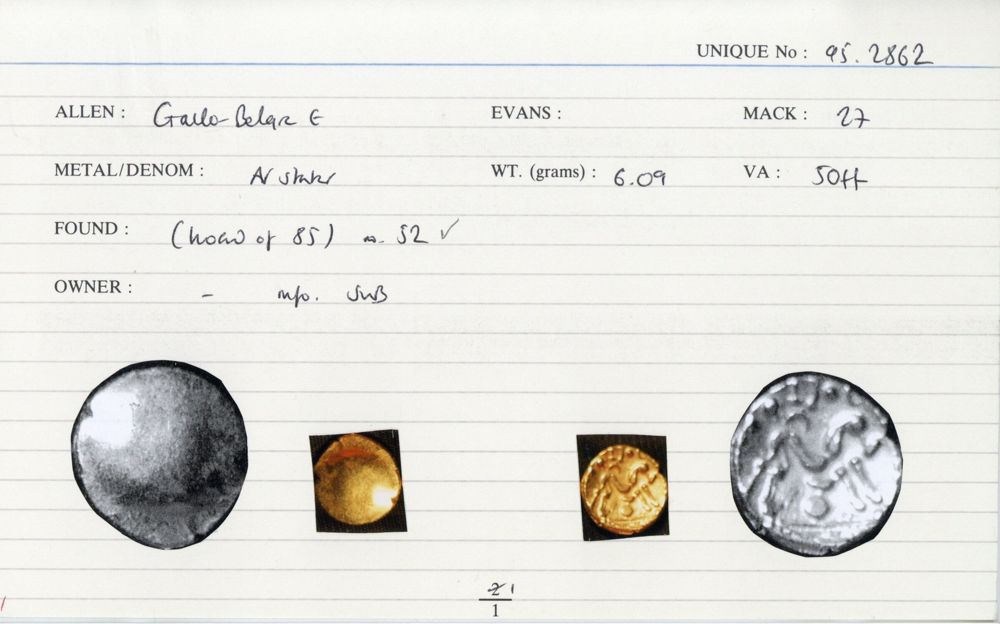 UNIQUE No : 95. 2862
ALLEN : Gallo-Belgic E EVANS : MACK : 27
METAL/DENOM : AV stater WT. (grams) : 6.09 VA : 50ff
FOUND : (hoard of 85) no. 52 ✓
OWNER : -
1
1